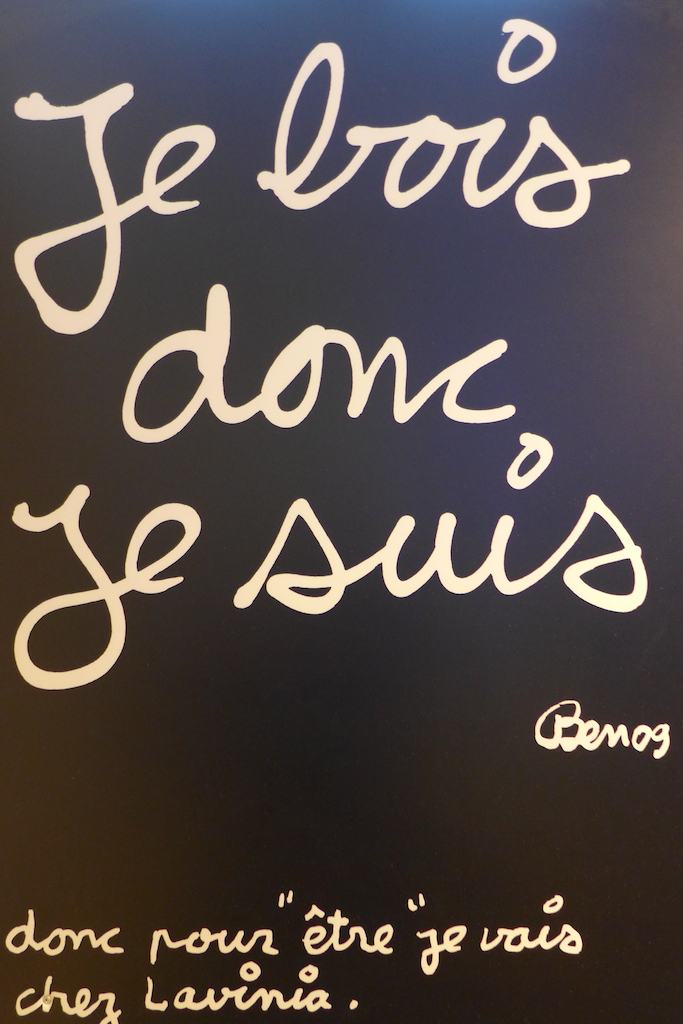 Je bois
donc
Je suis
Ben 09
donc pour "être" je vais
chez Lavinia.